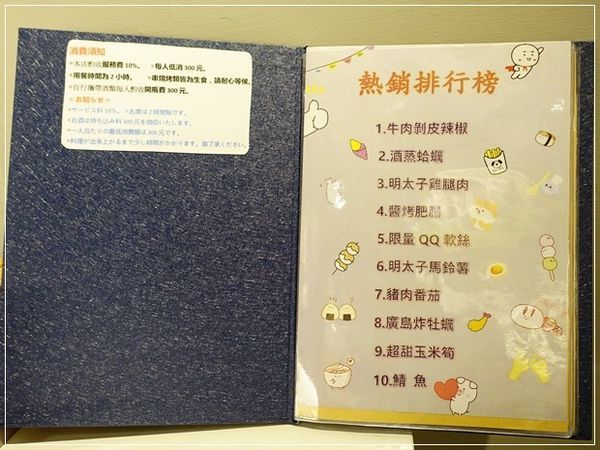 消費須知
*本店酌收服務費 10%。 *每人低消 300 元。
*用餐時間為 2 小時。 *串燒烤類皆為生食，請耐心等候。
*自行攜帶酒類每人酌收開瓶費 300 元。
<お知らせ>
*サービス料 10%。 *お席は 2 時間制です。
*お酒は持ち込み料 300 元を徴収いたします。
*一人当たりの最低消費額は 300 元です。
*料理が出来上がるまで少し時間がかかります。御了承ください。
熱銷排行榜
1.牛肉剝皮辣椒
2.酒蒸蛤蠣
3.明太子雞腿肉
4.醬烤肥腸
5.限量 QQ 軟絲
6.明太子馬鈴薯
7.豬肉番茄
8.廣島炸牡蠣
9.超甜玉米筍
10.鯖 魚